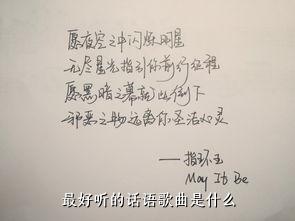 愿夜空之中闪烁明星
无尽星光指引你前行征程
愿黑暗之幕就此倒下
邪恶之物远离你圣洁心灵
——指环王
May It Be
最好听的话语歌曲是什么